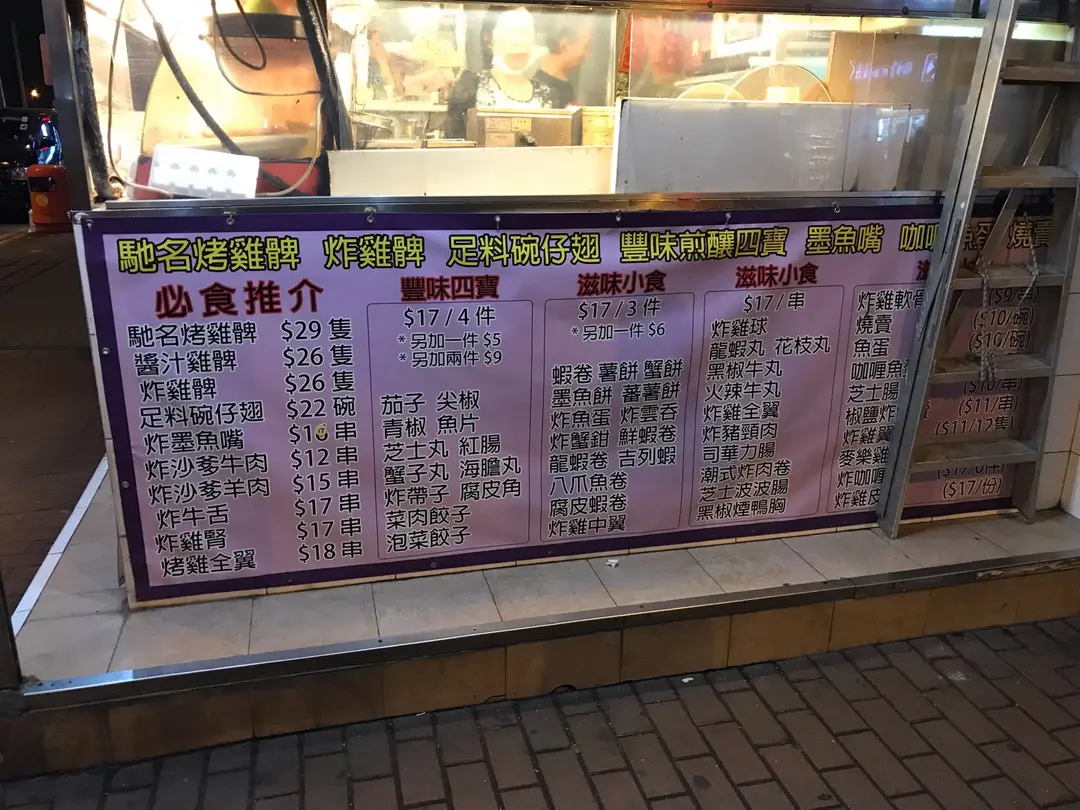 馳名烤雞髀 炸雞髀 足料碗仔翅 豐味煎釀四寶 墨魚嘴
必食推介
馳名烤雞髀 $29 隻
醬汁雞髀 $26 隻
炸雞髀 $26 隻
足料碗仔翅 $22 碗
炸墨魚嘴 串
炸沙爹牛肉 $12 串
炸沙爹羊肉 $15 串
炸牛舌 $17 串
炸雞腎 $17 串
烤雞全翼 $18 串
豐味四寶
$17 / 4 件
* 另加一件 $5
* 另加兩件 $9
茄子 尖椒
青椒 魚片
芝士丸 紅腸
蟹子丸 海膽丸
炸帶子 腐皮角
菜肉餃子
泡菜餃子
滋味小食
$17 / 3 件
* 另加一件 $6
蝦卷 薯餅 蟹餅
墨魚餅 蕃薯餅
炸魚蛋 炸雲吞
炸蟹鉗 鮮蝦卷
龍蝦卷 吉列蝦
八爪魚卷
腐皮蝦卷
炸雞中翼
滋味小食
$17 / 串
炸雞球
龍蝦丸 花枝丸
黑椒牛丸
火辣牛丸
炸雞全翼
炸豬頸肉
司華力腸
潮式炸肉卷
芝士波波腸
黑椒煙鴨胸
炸雞軟骨
燒賣 ($10/碗)
魚蛋 ($10/碗)
咖喱魚
芝士腸 ($10/串)
椒鹽炸 ($11/串)
炸雞翼 ($11/12隻)
麥樂雞
炸咖喱
炸雞皮 ($17/份)